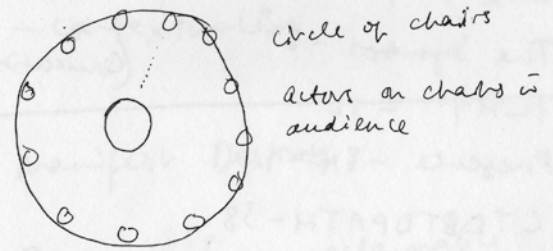 circle of chairs
actors on chairs in
audience